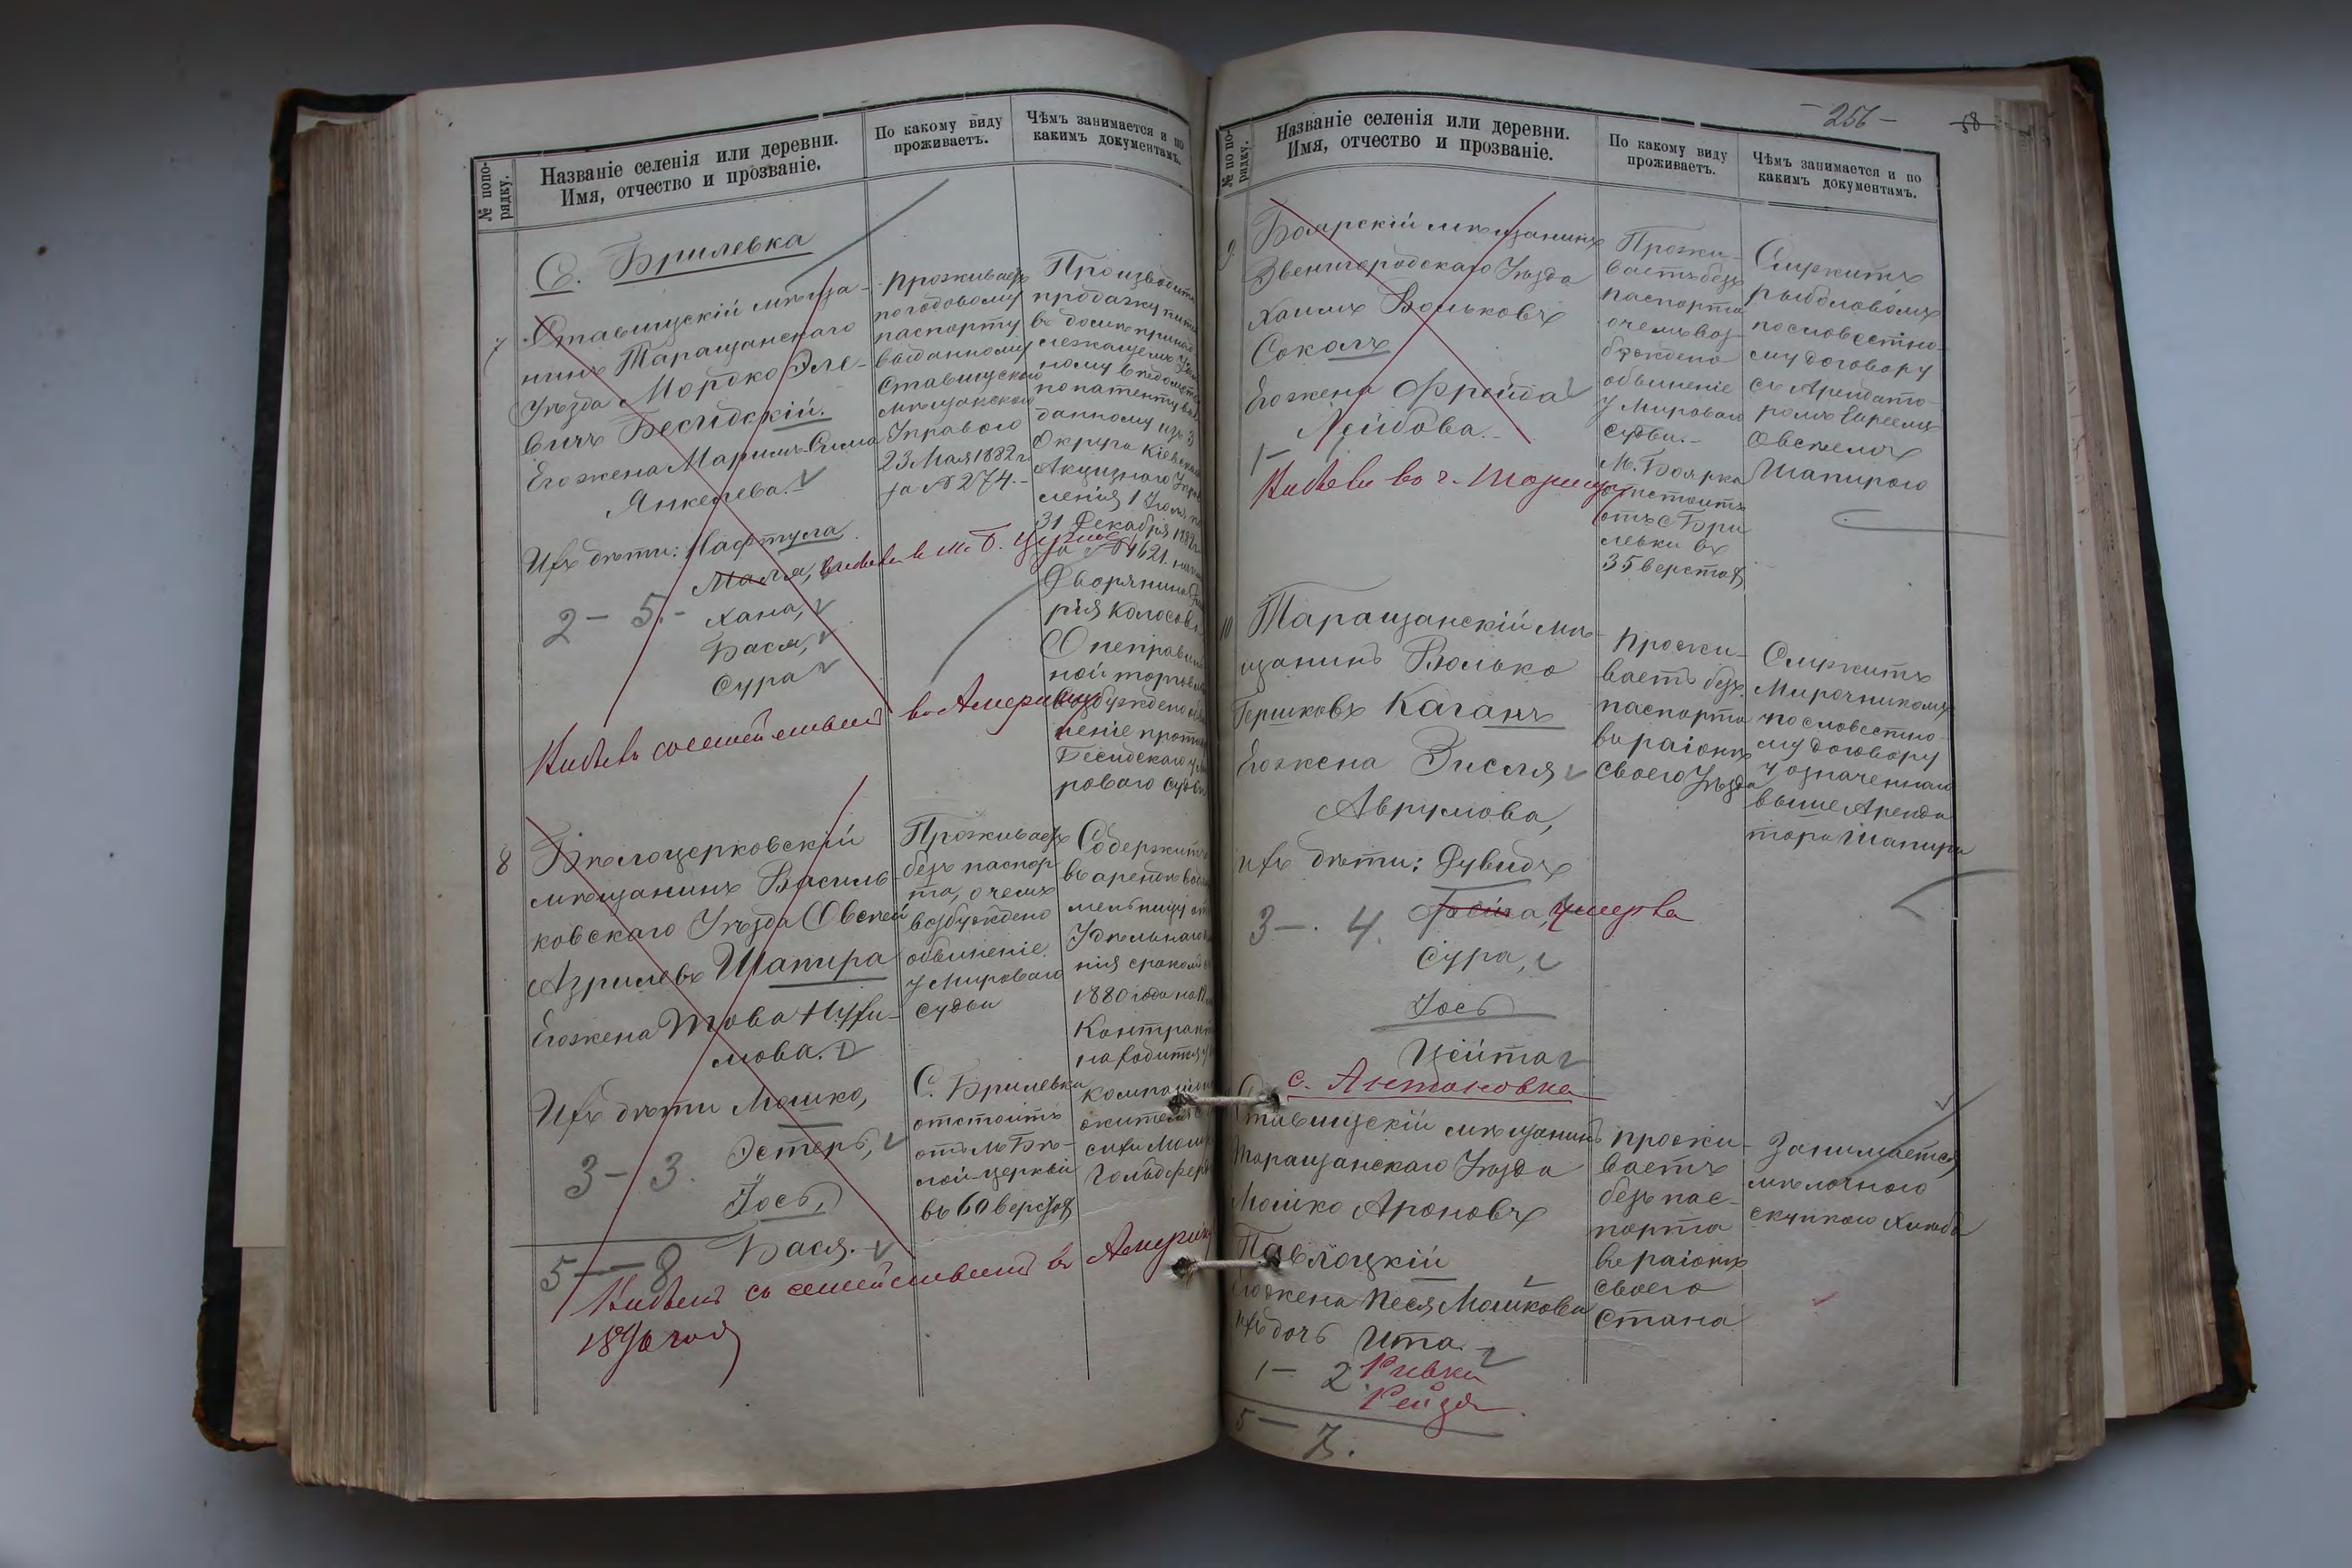 № попо-
рядку.
Названіе селенія или деревни.
Имя, отчество и прозваніе.
По какому виду
проживаетъ.
Чѣмъ занимается и по
какимъ документамъ.
С. Брилевка
7
Ставищскій мѣща-
нинъ Таращанскаго
Уѣзда Мордко Эле-
вичъ Бесидскій.
Его жена Марьямъ-Сима
Янкелева.
Ихъ дѣти: Нафтула
Маля, выбыла въ м. Б. Церковь
Хана,
Бася,
Сура
2 - 5.-
Выбылъ со семействомъ въ Америку
Проживаетъ
погодовому
паспорту
выданному
Ставищскою
Мѣщанскою
Управою
23 Мая 1882 г.
за № 274.-
Производитъ
продажу
въ домѣ
по патенту
данному изъ 3
Округа Кіевска
Акцизнаго
ленія 1 Іюля
31 Декабря 1882
за № 1621.
Дворянина
рія
О неправиль
ной торговлѣ
возбуждено
неніе против
Бесидскаго у
роваго судьи
8
Бѣлоцерковскій
мѣщанинъ Василь-
ковскаго Уѣзда Овсей
Азрилевъ Шапира
Его жена Това Нухи-
мова.
Ихъ дѣти Мошко,
Эстеръ,
Іось,
Бася.
3 - 3.
5 - 8
Выбылъ съ семействомъ въ Америку
Проживаетъ
безъ паспор
та, о чемъ
возбуждено
обвиненіе
у Мироваго
судьи
С. Брилевка
отстоитъ
отъ м. Бѣ-
лой-Церкви
въ 60 верстахъ
Содержитъ
въ арендѣ
мельницу
Удѣльнаго
нія срокомъ
1880 года на
Контракт
находится
сихи
Гольдфер
- 256 -
58
№ по по-
рядку.
Названіе селенія или деревни.
Имя, отчество и прозваніе.
По какому виду
проживаетъ.
Чѣмъ занимается и по
какимъ документамъ.
9
Боярскій мѣщанинъ
Звенигородскаго Уѣзда
Хаимъ Вольковъ
Соколъ
Его жена Фрейда
Лейбова.-
1 -
Выбыли въ г.
Прожи-
ваетъ безъ
паспорта
о чемъ воз-
буждено
обвиненіе
у Мироваго
Судьи.-
М. Боярка
отстоитъ
отъ с. Бри
левки въ
35 верстахъ
Служитъ
рыболовомъ
по словестно-
му договору
съ Арендато-
ромъ Евреемъ
Овсѣемъ
Шапирою
10
Таращанскій мѣ-
щанинъ Волько
Гершковъ Каганъ
Его жена Зисля
Аврумова,
Ихъ дѣти: Дувидъ
Фейга, умерла
Сура,
Іось
Цейта
3 -. 4.
Прожи-
ваетъ безъ
паспорта
въ раіонѣ
своего Уѣзда
Служитъ
Мирочникомъ
по словестно-
му договору
у означеннаго
выше Аренда
тора Шапиры
с. Антоновка
Ставищскій мѣщанинъ
Таращанскаго Уѣзда
Мошко Ароновъ
Павлоцкій
Его жена Песя Мошкова
Ихъ дочь Ита.
1 - 2.
Ривка
Рейзя
5 - 7.
Прожи-
ваетъ
безъ пас-
порта
въ раіонѣ
своего
Стана
Занимается
мѣлочною
скупкою хлѣба